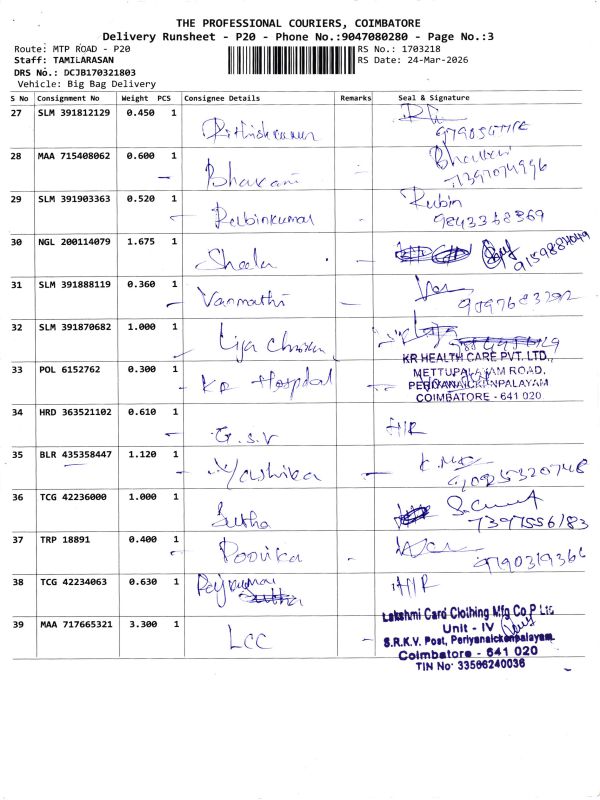 THE PROFESSIONAL COURIERS, COIMBATORE
Delivery Runsheet - P20 - Phone No.:9047080280 - Page No.:3
Route: MTP ROAD - P20 RS No.: 1703218
Staff: TAMILARASAN RS Date: 24-Mar-2026
DRS No.: DCJB170321803
Vehicle: Big Bag Delivery
S No Consignment No Weight PCS Consignee Details Remarks Seal & Signature
27 SLM 391812129 0.450 1
28 MAA 715408062 0.600 1 Bhavani
7397074996
29 SLM 391903363 0.520 1 Rubin
Rubinkumar 9843368369
30 NGL 200114079 1.675 1 9159884049
Sheela
31 SLM 391888119 0.360 1
Vanmathi 9097683292
32 SLM 391870682 1.000 1
KR HEALTH CARE PVT. LTD.,
33 POL 6152762 0.300 1 METTUPALAYAM ROAD,
KR Hospital PERIYANAICKENPALAYAM
COIMBATORE - 641 020
34 HRD 363521102 0.610 1 H/R
G.S.V
35 BLR 435358447 1.120 1
Yashika
36 TCG 42236000 1.000 1
Sutha 7397556183
37 TRP 18891 0.400 1
Poovika 9790319366
38 TCG 42234063 0.630 1 Rajkumar H/R
Sutha
Lakshmi Card Clothing Mfg Co P Ltd
39 MAA 717665321 3.300 1 Unit - IV
LCC S.R.K.V. Post, Periyanaickenpalayam
Coimbatore - 641 020
TIN No: 33566240036